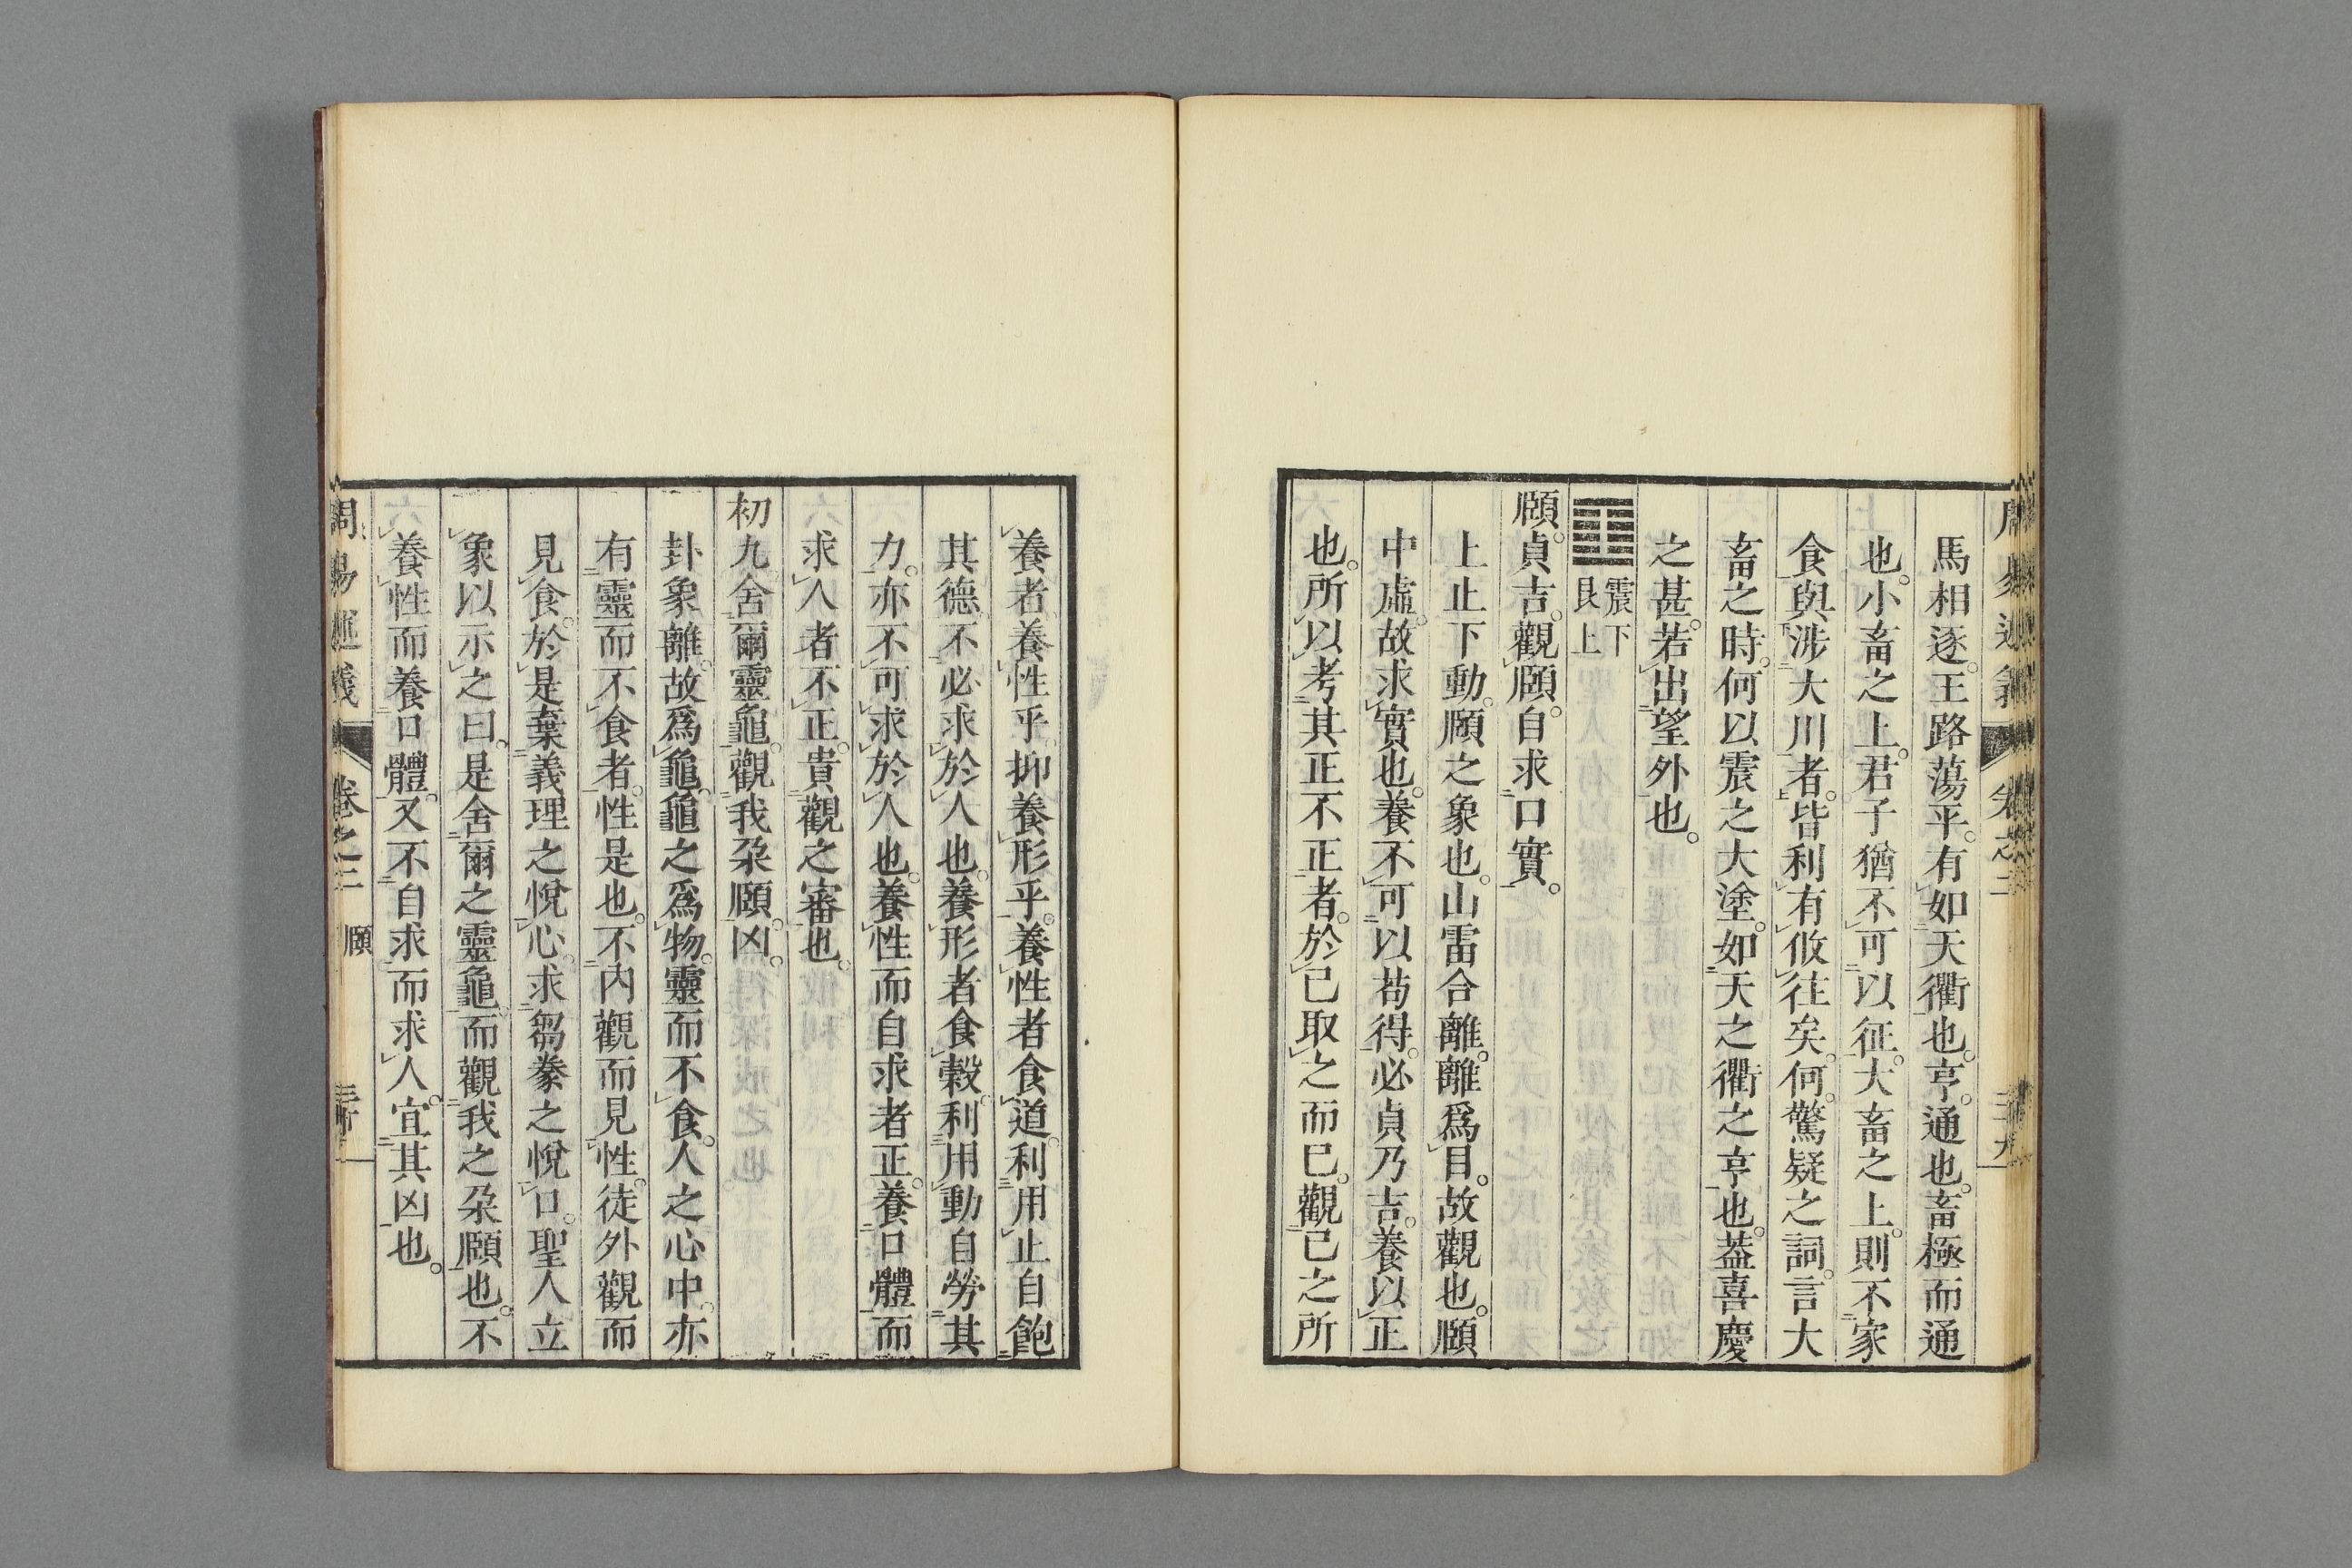 馬相逐。王路蕩平。有如天衢也。亨。通也。畜極而通
也。小畜之上。君子猶不可以征。大畜之上。則不家
食與涉大川者。皆利有攸往矣。何。驚疑之詞。言大
畜之時。何以震之大塗。如天之衢之亨也。葢喜慶
之甚。若出望外也。
震下
艮上
頤。貞吉。觀頤。自求口實。
上止下動。頤之象也。山雷合離。離爲目。故觀也。頤
中虛。故求實也。養不可以苟得。必貞乃吉。養以正
也。所以考其正不正者。於已取之而已。觀已之所
養者。養性乎。抑養形乎。養性者食道。利用止自飽
其德。不必求於人也。養形者食穀。利用動自勞其
力。亦不可求於人也。養性而自求者正。養口體而
求人者不正。貴觀之審也。
初九。舍爾靈龜。觀我朶頤。凶。
卦象離。故爲龜。龜之爲物。靈而不食。人之心中。亦
有靈而不食者。性是也。不內觀而見性。徒外觀而
見食。於是棄義理之悅心。求芻豢之悅口。聖人立
象以示之曰。是舍爾之靈龜。而觀我之朶頤也。不
養性而養口體。又不自求而求人。宜其凶也。
卷之三 頤